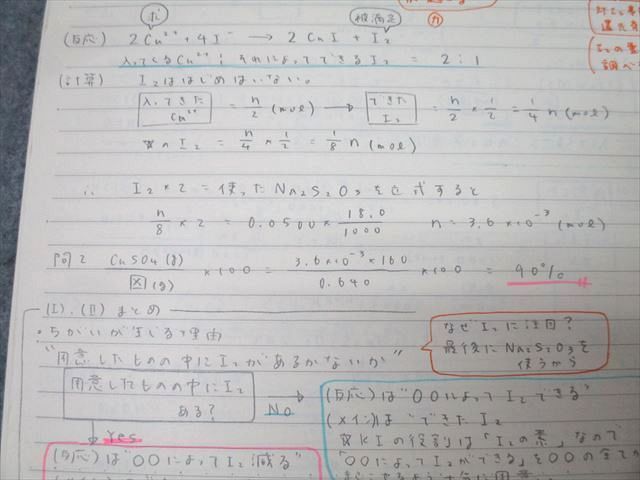 ポ
被滴定
(反応) 2Cu²⁺ + 4I⁻ → 2CuI + I₂
カ
入ってくるCu²⁺ : それによってできるI₂ = 2 : 1
I₂の素
調べ
(計算) I₂ははじめはいない。
入ってきたCu²⁺ = n/2 (mol) → できたI₂ = n/2 × 1/2 = 1/4 n (mol)
I₂ = n/4 × 1/2 = 1/8 n (mol)
∴ I₂ × 2 = 使ったNa₂S₂O₃を立式すると
n/8 × 2 = 0.0500 × 18.0/1000 n = 3.6×10⁻³ (mol)
問2 CuSO₄(g)/図(g) × 100 = 3.6×10⁻³×160/0.640 × 100 = 90%
(I), (II) まとめ
・ちがいが生じる理由
"用意したものの中にI₂があるかないか"
なぜI₂に注目?
最後にNa₂S₂O₃を
使うから
用意したものの中にI₂
ある?
No
Yes
(反応)は"〇〇によってI₂できる"
(メイン)は"できたI₂
KIの役割は「I₂の素」なので
「〇〇によってI₂ができる」を〇〇の全てが
(反応)は"〇〇によってI₂減る"